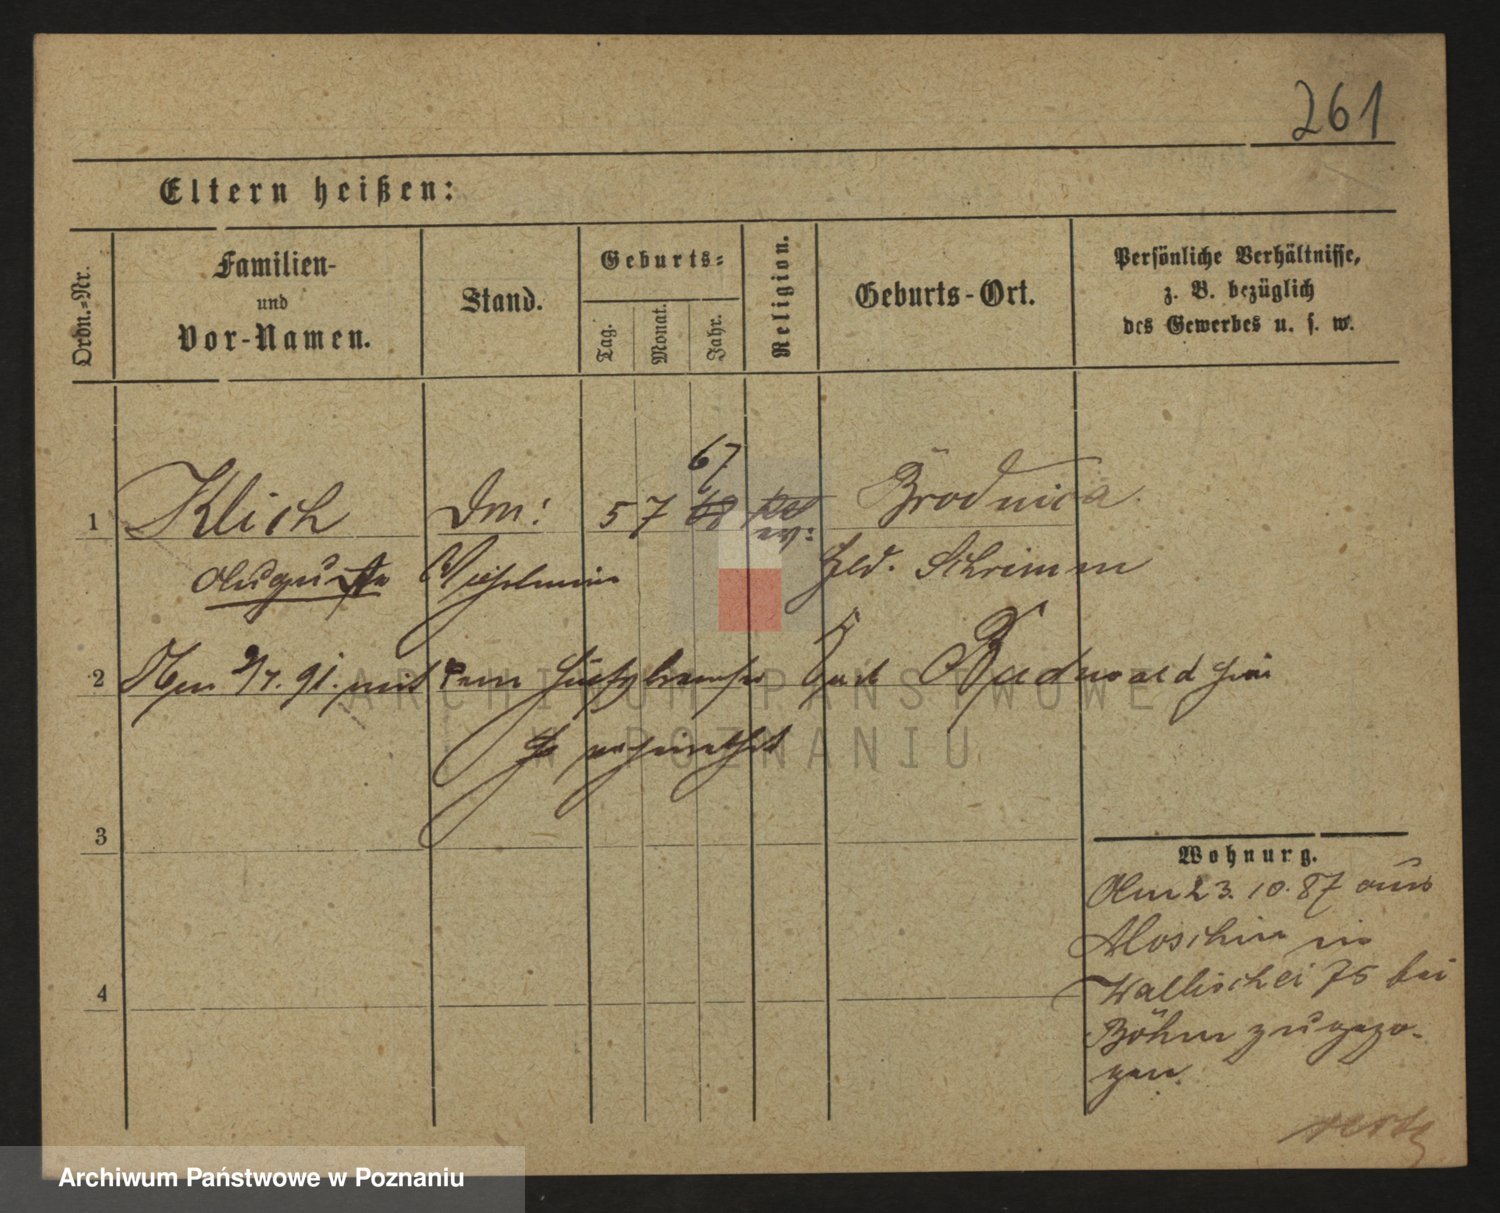 261
Eltern heißen:
Ordn.-Nr.
Familien-
und
Vor-Namen.
Stand.
Geburts-
Tag.
Monat.
Jahr.
Religion.
Geburts-Ort.
Persönliche Verhältnisse,
z. B. bezüglich
des Gewerbes u. s. w.
67
1 Klich Dm: 5 7 68 kat Brodnica
ev:
Auguste Wilhelmine Kr. Schrimm
2 Am 9/7. 91. mit dem Radwald
verheirathet
3
Wohnurg.
Am 23. 10. 87 aus
Moschin in
4
Wallischei 75 bei
Böhm zugezo-
gen.
ARCHIWUM PAŃSTWOWE
W POZNANIU
Archiwum Państwowe w Poznaniu